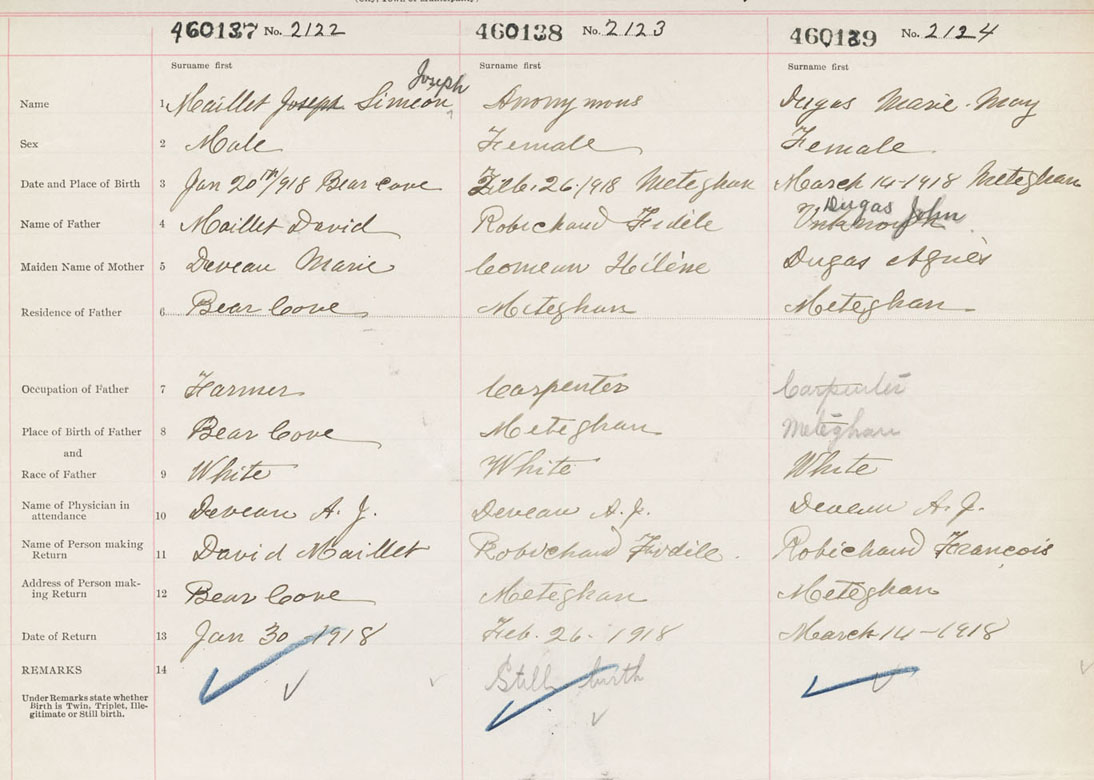 460137 No. 2122 460138 No. 2123 460139 No. 2124
Surname first Surname first Surname first
Joseph
Name 1 Maillet Joseph Simeon Anonymous Dugas Marie May
Sex 2 Male Female Female
Date and Place of Birth 3 Jan 20th/918 Bear Cove Feb. 26. 1918 Meteghan March 14-1918 Meteghan
Dugas John
Name of Father 4 Maillet David Robichaud Fidèle Unknown
Maiden Name of Mother 5 Deveau Marie Comeau Hélène Dugas Agnès
Residence of Father 6 Bear Cove Meteghan Meteghan
Occupation of Father 7 Farmer Carpenter Carpenter
Place of Birth of Father 8 Bear Cove Meteghan Meteghan
and
Race of Father 9 White White White
Name of Physician in
attendance 10 Deveau A. J. Deveau A. J. Deveau A. J.
Name of Person making
Return 11 David Maillet Robichaud Fidèle. Robichaud François
Address of Person mak-
ing Return 12 Bear Cove Meteghan Meteghan
Date of Return 13 Jan 30 - 1918 Feb. 26. 1918 March 14-1918
REMARKS 14 Still birth
Under Remarks state whether
Birth is Twin, Triplet, Ille-
gitimate or Still birth.